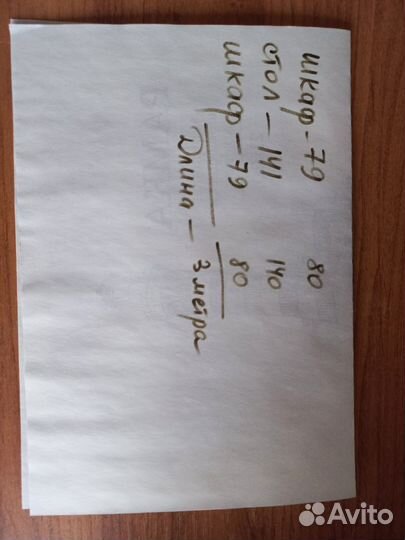 шкаф - 79 80
стол - 141 140
шкаф - 79 80
Длина - 3 метра
Avito